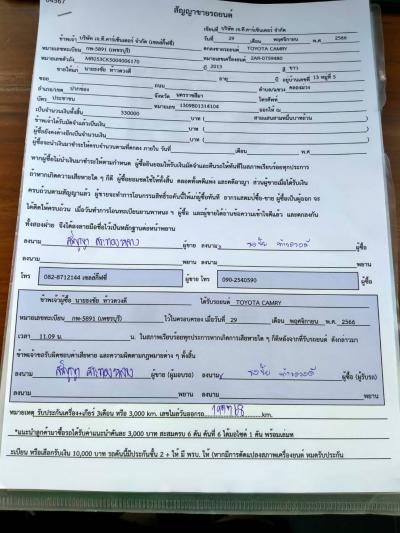 04567
สัญญาขายรถยนต์
เขียนที่ บริษัท เจ.ที.คาร์เซ็นเตอร์ จำกัด
ข้าพเจ้า บริษัท เจ.ที.คาร์เซ็นเตอร์ จำกัด (เซลล์กิ๊ฟซี่) วันที่ 29 เดือน พฤศจิกายน พ.ศ. 2566
หมายเลขทะเบียน กพ-5891 (เพชรบุรี) ตกลงขายรถยนต์ TOYOTA CAMRY
หมายเลขตัวถัง MR053CK5004006170 หมายเลขเครื่องยนต์ 2AR-0759480
ขายให้แก่ นายธงชัย ท้าวดวงดี ปี 2013 สี ขาว
ซอย ถนน อายุ ปี อยู่บ้านเลขที่ 13 หมู่ที่ 5
อำเภอ/เขต ปากช่อง จังหวัด นครราชสีมา ตำบล/แขวง คลองม่วง
บัตร ประชาชน หมายเลข 1309801316104 โทรศัพท์
ออกให้ ณ
เป็นจำนวนเงินทั้งสิ้น 330000 บาท ( สามแสนสามหมื่นบาทถ้วน )
ข้าพเจ้าได้รับมัดจำแล้วเป็นเงิน บาท (
ผู้ซื้อยังคงค้างอีกเป็นจำนวนเงิน บาท (
ผู้ซื้อจะนำเงินมาชำระให้ครบจำนวนตามที่ตกลง ภายใน วันที่ เดือน พ.ศ.
หากผู้ซื้อไม่นำเงินมาชำระให้ครบตามกำหนด ผู้ซื้อยินยอมให้ริบเงินมัดจำและคืนรถให้ทันทีในสภาพเรียบร้อยทุกประการ
ถ้าหากเกิดความเสียหายใด ๆ ก็ดี ผู้ซื้อยอมชดใช้ให้ทั้งสิ้น ตลอดทั้งคดีแพ่ง และคดีอาญา ส่วนผู้ขายเมื่อได้รับเงิน
ครบถ้วนตามสัญญาแล้ว ผู้ขายจะทำการโอนกรรมสิทธิ์รถคันนี้ให้แก่ผู้ซื้อทันที อากรแสตมป์ซื้อ-ขาย ผู้ซื้อเป็นผู้ออก จะ
ได้คิดให้ครบถ้วน เมื่อวันทำการโอนทะเบียนยานพาหนะ ๆ ผู้ซื้อ และผู้ขายได้อ่านข้อความเข้าใจดีแล้ว และตกลงกัน
ทั้งสองฝ่าย จึงได้ลงลายมือชื่อไว้เป็นหลักฐานต่อหน้าพยาน
ลงนาม ผู้ขาย ลงนาม ธงชัย ท้าวดวงดี ผู้ซื้อ
ลงนาม พยาน ลงนาม พยาน
โทร 082-8712144 เซลล์กิ๊ฟซี่ ผู้ขาย โทร 090-2540590 ผู้ซื้อ
ข้าพเจ้าผู้ซื้อ นายธงชัย ท้าวดวงดี ได้รับรถยนต์ TOYOTA CAMRY
หมายเลขทะเบียน กพ-5891 (เพชรบุรี) ไว้ในครอบครอง เมื่อวันที่ 29 เดือน พฤศจิกายน พ.ศ. 2566
เวลา 11.09 น. น. ในสภาพเรียบร้อยทุกประการหากเกิดการเสียหายใด ๆ ก็ดีหลังจากที่รับรถยนต์ ดังกล่าวมา
ข้าพเจ้าขอรับผิดชอบค่าเสียหาย และความผิดตามกฎหมายต่าง ๆ ทั้งสิ้น
ลงนาม ผู้ขาย (ผู้มอบรถ) ลงนาม ธงชัย ท้าวดวงดี ผู้ซื้อ (ผู้รับรถ)
ลงนาม พยาน ลงนาม พยาน
หมายเหตุ รับประกันเครื่อง+เกียร์ 3เดือน หรือ 3,000 km. เลขไมล์วันออกรถ km.
*แนะนำลูกค้ามาซื้อรถได้รับค่าแนะนำคันละ 3,000 บาท สะสมครบ 6 คัน คันที่ 6 ได้มอไซค์ 1 คัน พร้อมเล่มท
ะเบียน หรือเลือกรับเงิน 10,000 บาท รถคันนี้มีประกันชั้น 2 + ให้ มี พรบ. ให้ (หากมีการดัดแปลงสภาพเครื่องยนต์ หมดรับประกัน